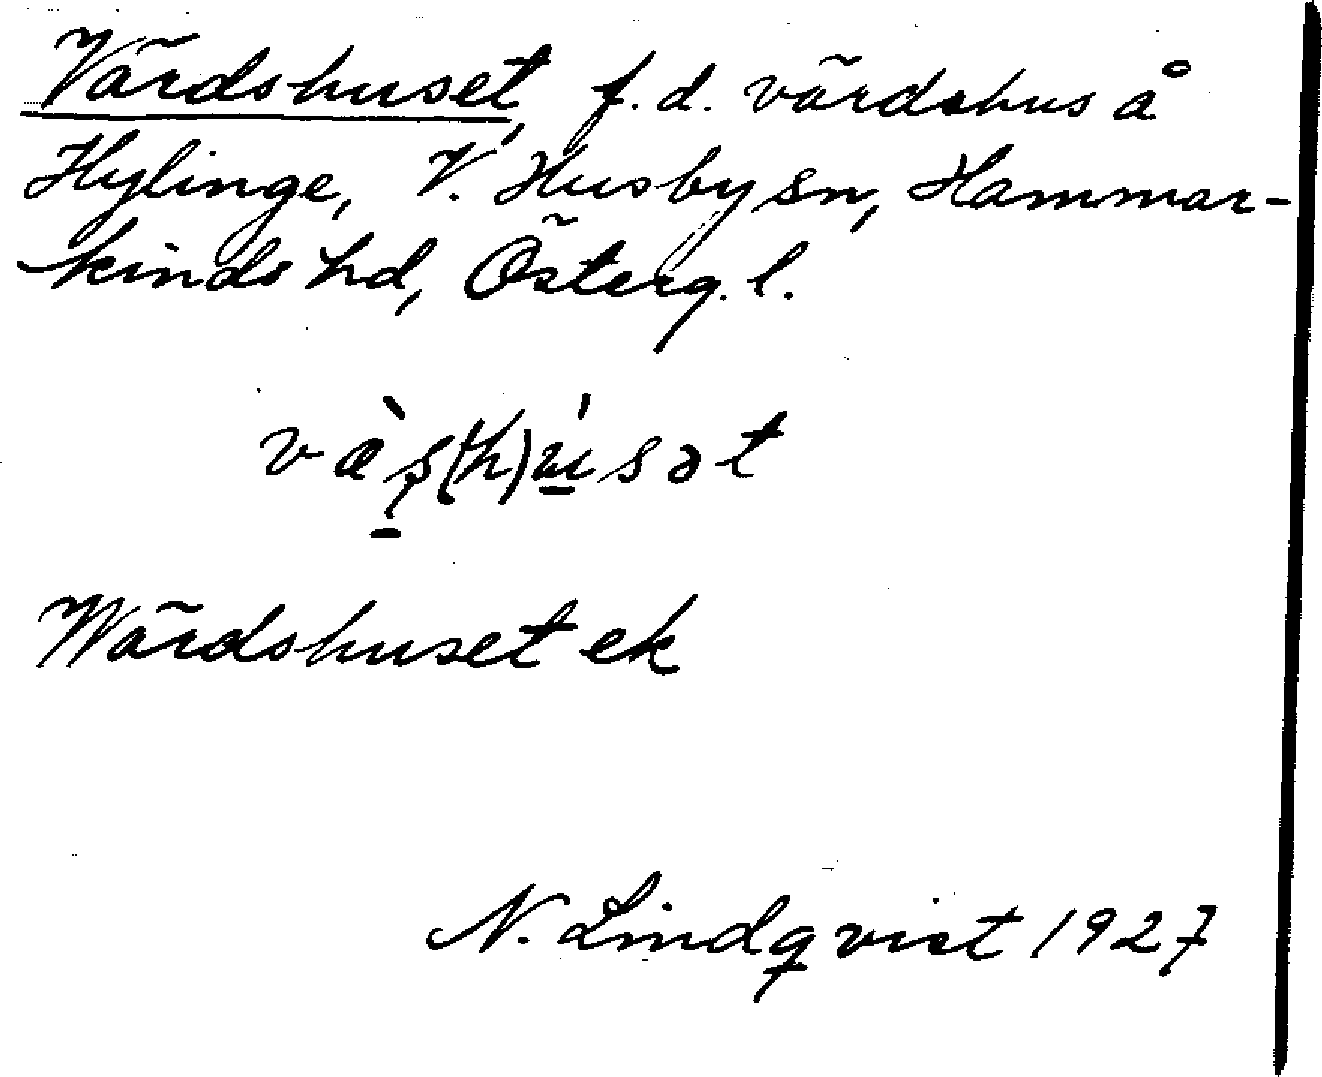 Värdshuset, f.d. värdshus å
Hylinge, V. Husby sn, Hammar-
kinds hd, Österg. l.
væ̀ʂ(h)ú̱sət
Wärdshuset ek
N. Lindqvist 1927